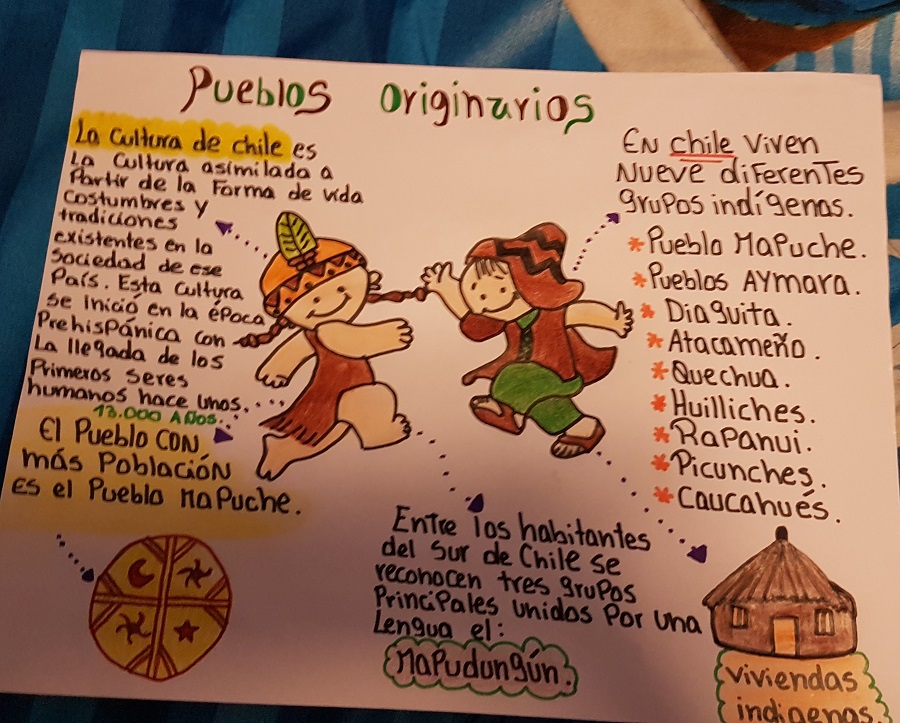 Pueblos Originarios
La Cultura de Chile es
La Cultura asimilada a
Partir de la Forma de vida
Costumbres y
tradiciones
existentes en la
Sociedad de ese
País. Esta Cultura
se Inició en la época
Prehispánica con
La llegada de los
Primeros seres
humanos hace unos.
13.000 Años..
El Pueblo CON
más Población
es el Pueblo Mapuche.
EN chile viven
Nueve diferentes
grupos indígenas.
* Pueblo Mapuche.
* Pueblos Aymara.
* Diaguita.
* Atacameño.
* Quechua.
* Huilliches.
* Rapanui.
* Picunches.
* Caucahués.
Entre los habitantes
del Sur de Chile se
reconocen tres grupos
Principales unidos Por una
Lengua el:
Mapudungún.
viviendas
indigenas.